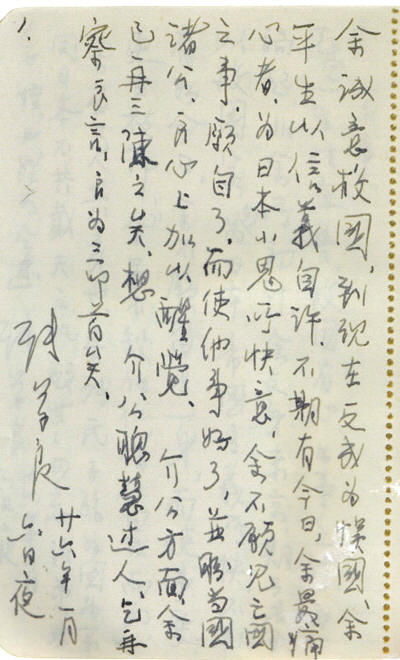 余誠意救國，到現在反成为悮國，余
平生以信義自許，不期有今日，余最痛
心者，为日本小鬼所快意，余不願見亡國
之事，願自了，而使他事好了，並盼当國
諸公，良心上加以醒覺，介公方面，余
已再三陳之矣，想介公聰慧过人，乞再
察良言，良为三叩首矣。
張学良
廿六年一月
六日夜